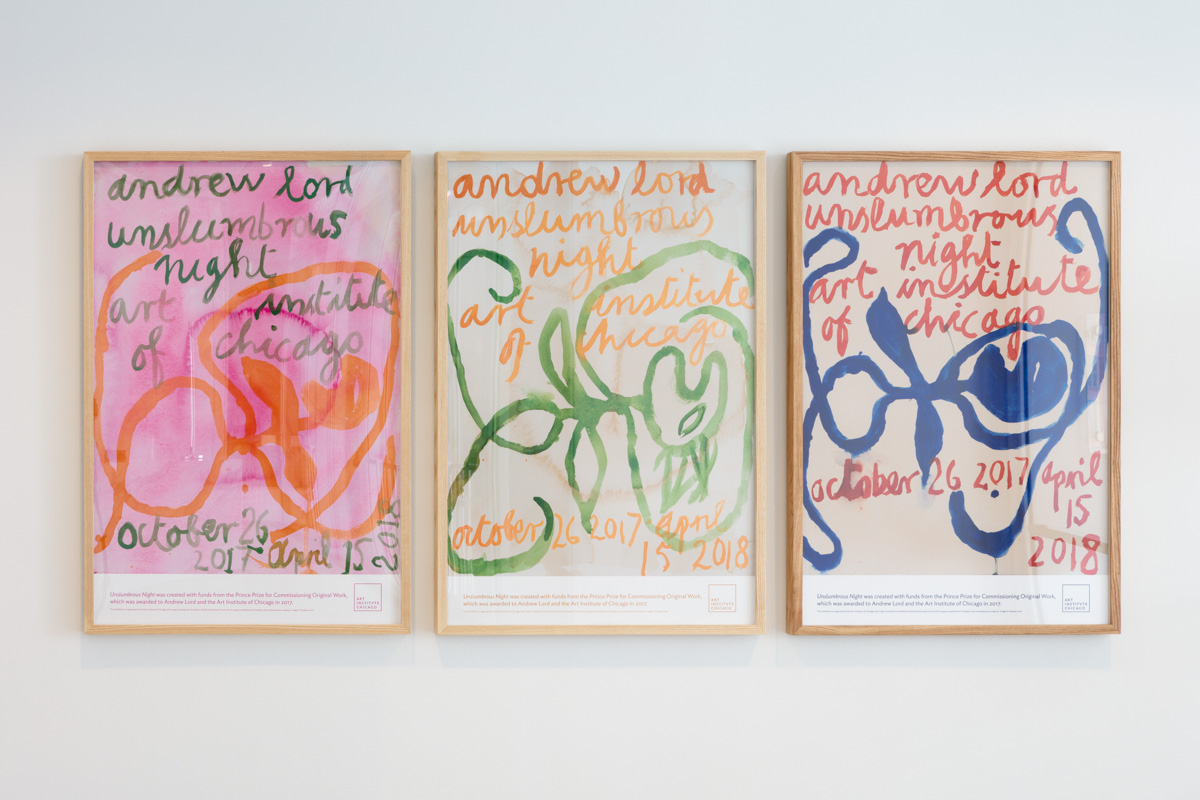 andrew lord
unslumbrous
night
art institute
of chicago
october 26
2017 april 15
2018
Unslumbrous Night was created with funds from the Prince Prize for Commissioning Original Work,
which was awarded to Andrew Lord and the Art Institute of Chicago in 2017.
ART
INSTITVTE
CHICAGO
andrew lord
unslumbrous
night
art institute
of chicago
october 26 2017 april
15 2018
Unslumbrous Night was created with funds from the Prince Prize for Commissioning Original Work,
which was awarded to Andrew Lord and the Art Institute of Chicago in 2017.
ART
INSTITVTE
CHICAGO
andrew lord
unslumbrous
night
art institute
of chicago
october 26 2017 april
15
2018
Unslumbrous Night was created with funds from the Prince Prize for Commissioning Original Work,
which was awarded to Andrew Lord and the Art Institute of Chicago in 2017.
ART
INSTITVTE
CHICAGO